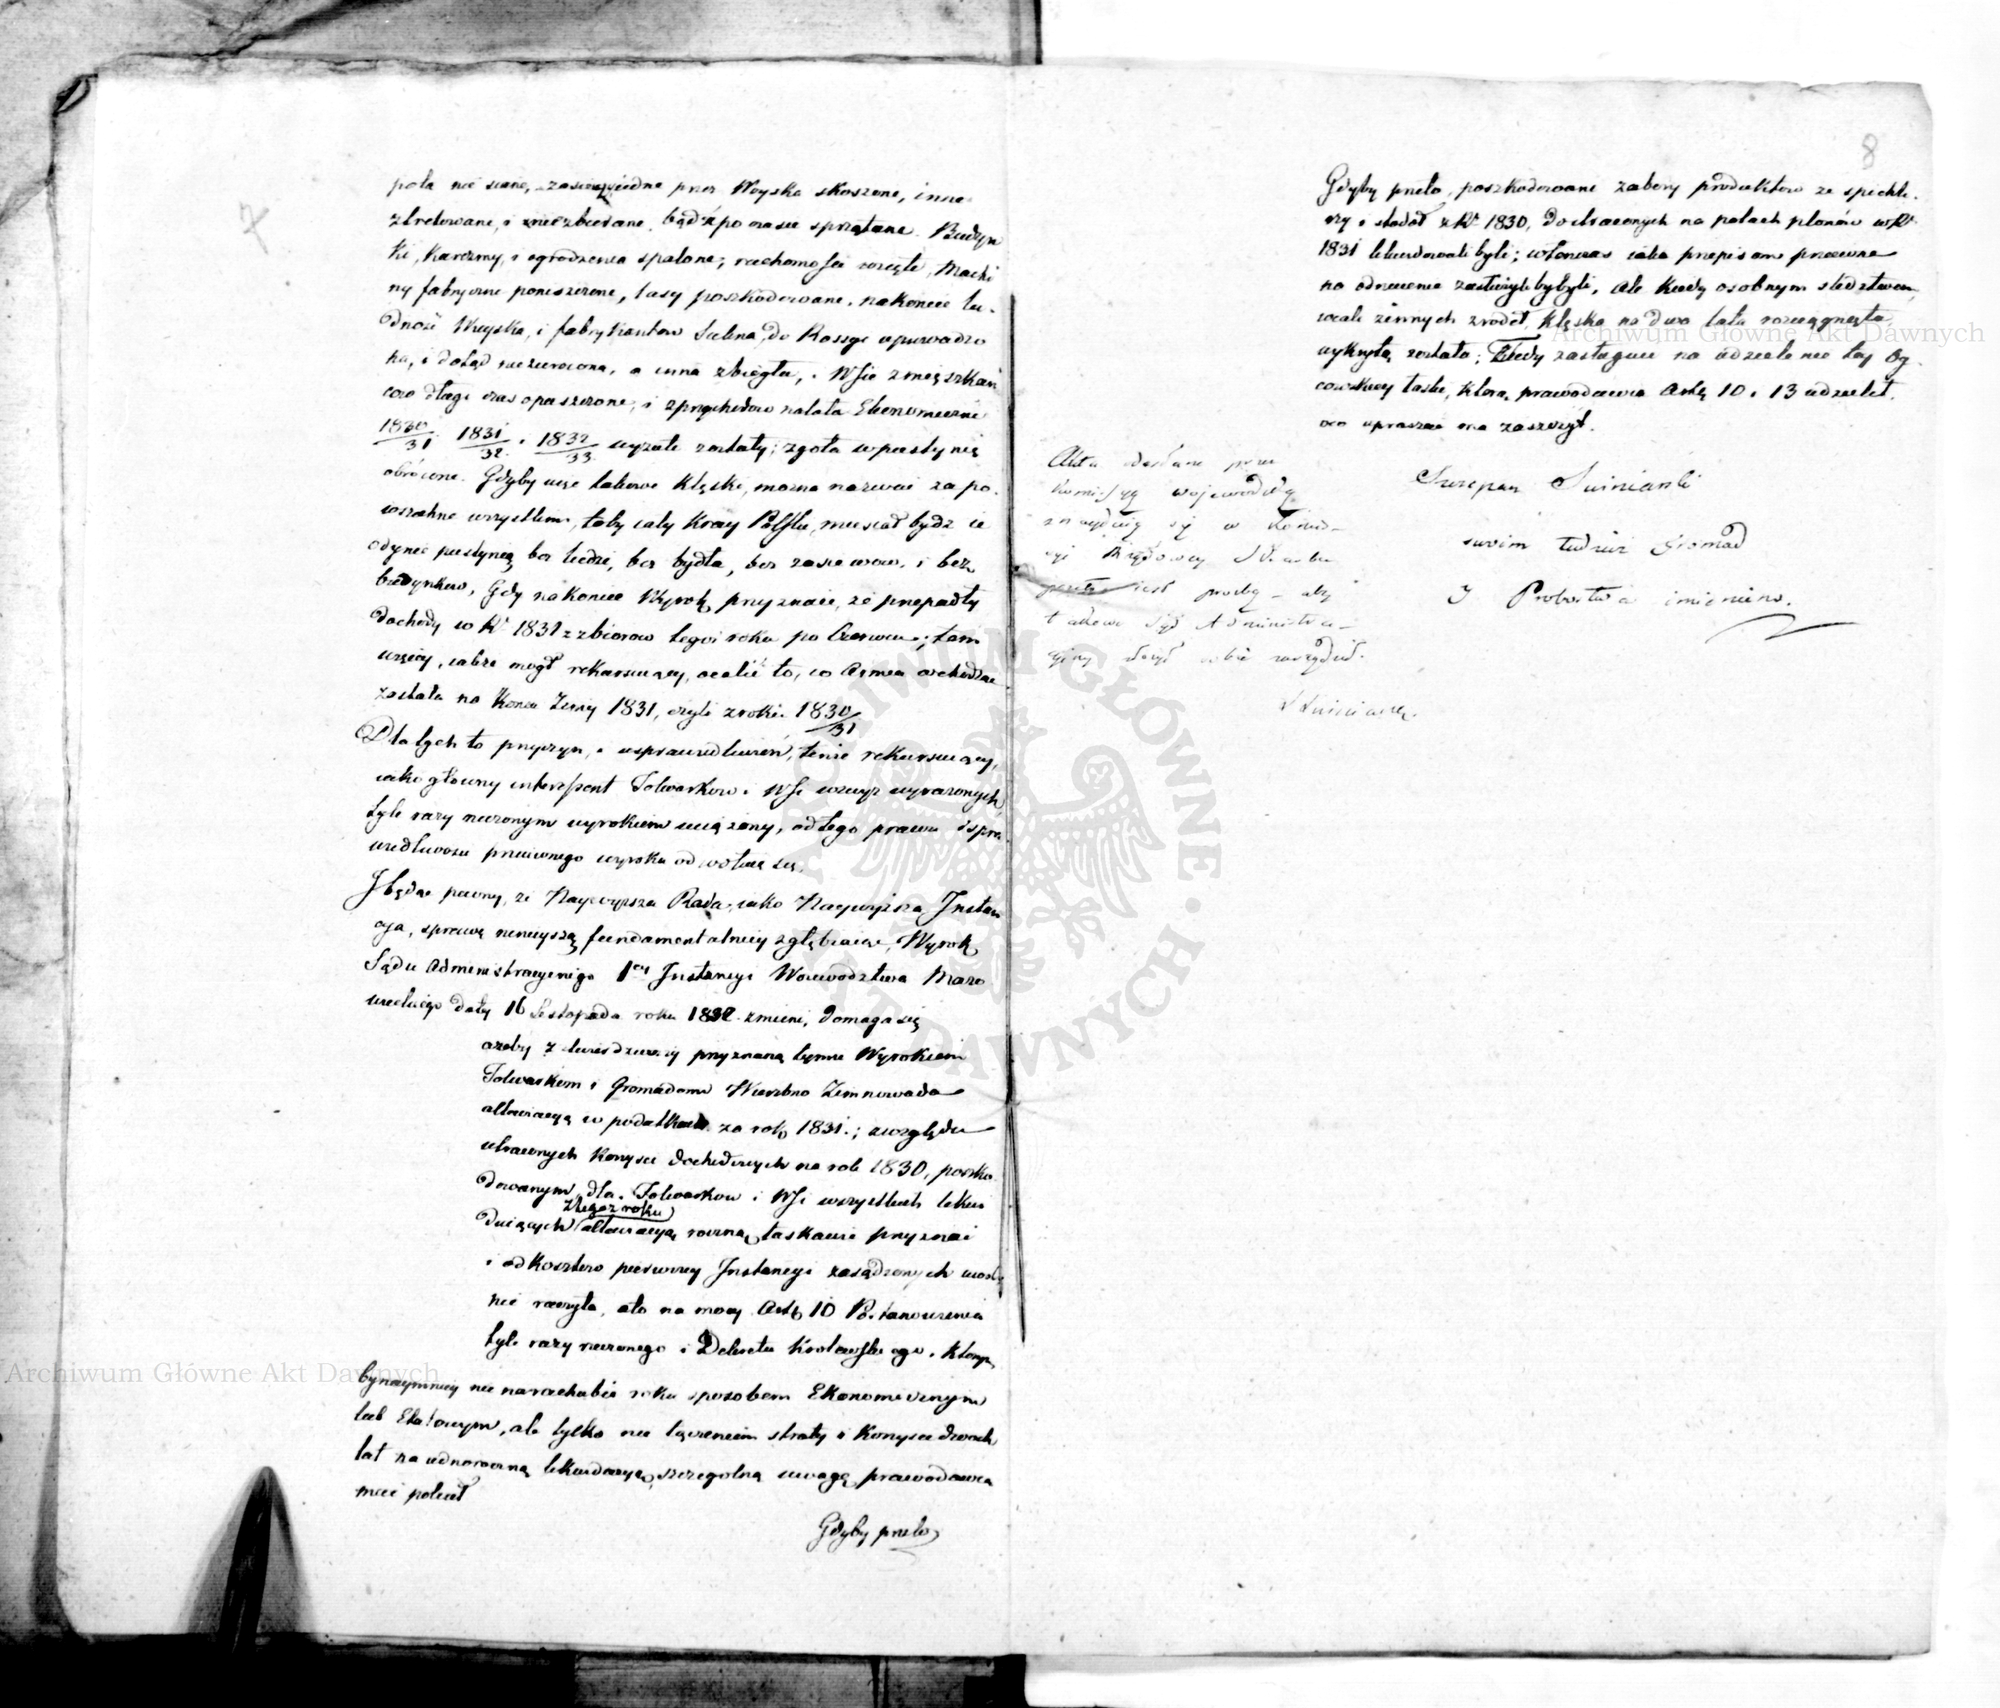 7
pola nie siane, zasiane jedne przez Woyska skoszone, inne
ztretowane, i niezbierane, bądź po czasie sprzątane. Budyn
ki, Karczmy, i ogrodzenia spalone; ruchomości wzięte, Machi
ny fabryczne poniszczone, lasy poszkodowane, nakoniec lu-
dność Wieyska, i fabrykantów do Rossyi uprowadzo
na, i dotąd niezwrócona, a inna zbiegła, i Wsie z mieszkań
ców długi czas opuszczone, i z przychodów na lata Ekonomiczne
1830/31 1831/32 i 1832/33 wyzute zostały; zgoła w pustynię
obrócone. Gdyby więc takowe Klęski, można nazwać za po-
wszechne wszystkim, toby cały Kray Polski, musiał bydź ie
dynie pustynią bez ludzi, bez bydła, bez zasiewów, i bez
budynków, Gdy nakoniec Wyrok przyznaie, że przepadły
dochody w Rº 1831 z zbiorów tegoż roku po Czerwcu; tem
więcey, iakże mógł rekursuiący, ocalić to, co Armia
zastała na końcu Zimy 1831, czyli z roku 1830/31
Dla tych to przyczyn, i usprawiedliwień, tenże rekursuiący,
iako główny interessent Folwarków i Wsi wzwyż wyrażonych
tyle razy rzeczonym wyrokiem uciążony, od tego prawu i spra
wiedliwości przeciwnego wyroku odwołuie się.
I będąc pewny, że Naywyższa Rada, iako Naywyższa Instan
cya, sprawę ninieyszą fundamentalniey zgłębiaiąc, Wyrok
Sądu Administracyinego 1ey Instancyi Woiewództwa Mazo
wieckiego daty 16 Listopada roku 1832 zmieni, domaga się
ażeby z twierdzeniey przyznaną tymże Wyrokiem
Folwarkom i Gromadom Wierzbno Zimnowoda
allewiacyą w podatkach za rok 1831.; z względu
utraconych Korzyści dochodowych na rok 1830, poszko
dowanym, dla Folwarków i Wsi wszystkich likwi
z tegoż roku
duiących allewiacyą równą, łaskawie przyznać
i od kosztów pierwszey Instancyi zasądzonych
nie raczyła, a to na mocy Artº 10 Postanowienia
tyle razy rzeczonego i Dekretu Królewskiego. Którym
bynaymniey nie na rachubie roku sposobem Ekonomicznym
lub Etatowym, ale tylko na łączeniu straty i Korzyści dwóch
lat na iednoroczną likwidacyą, szczególną uwagę, prawodawca
mieć polecił
Gdyby przeto
8
Gdyby przeto, poszkodowane zabory produktów ze spichle-
rzy i stodół z Rº 1830, do straconych na polach plonów w Rº
1831 likwidowali byli; wtenczas iako przepisom przeciwne
na odrzucenie zasłużyłyby były, Ale kiedy osobnym śledztwem,
wcale z innych zródeł, Klęska na dwa lata rozciągnięta
wykrytą została; Tedy zasługuie na udzielenie tey Oy-
cowskiey łaski, którą prawodawca Artº 10 i 13 udzielił.
oco upraszać ma zaszczyt.
Szczepan Suimiarski
swoim tudzież Gromad
I Probostwa imieniem.
Akta złożone przez
Kommissyą Wojewódzką
znayduią się w Komis-
syi Rządowey Skarbu
jest prośba – aby
takowe Sąd Administra-
cyjny raczył sobie zarządzić.